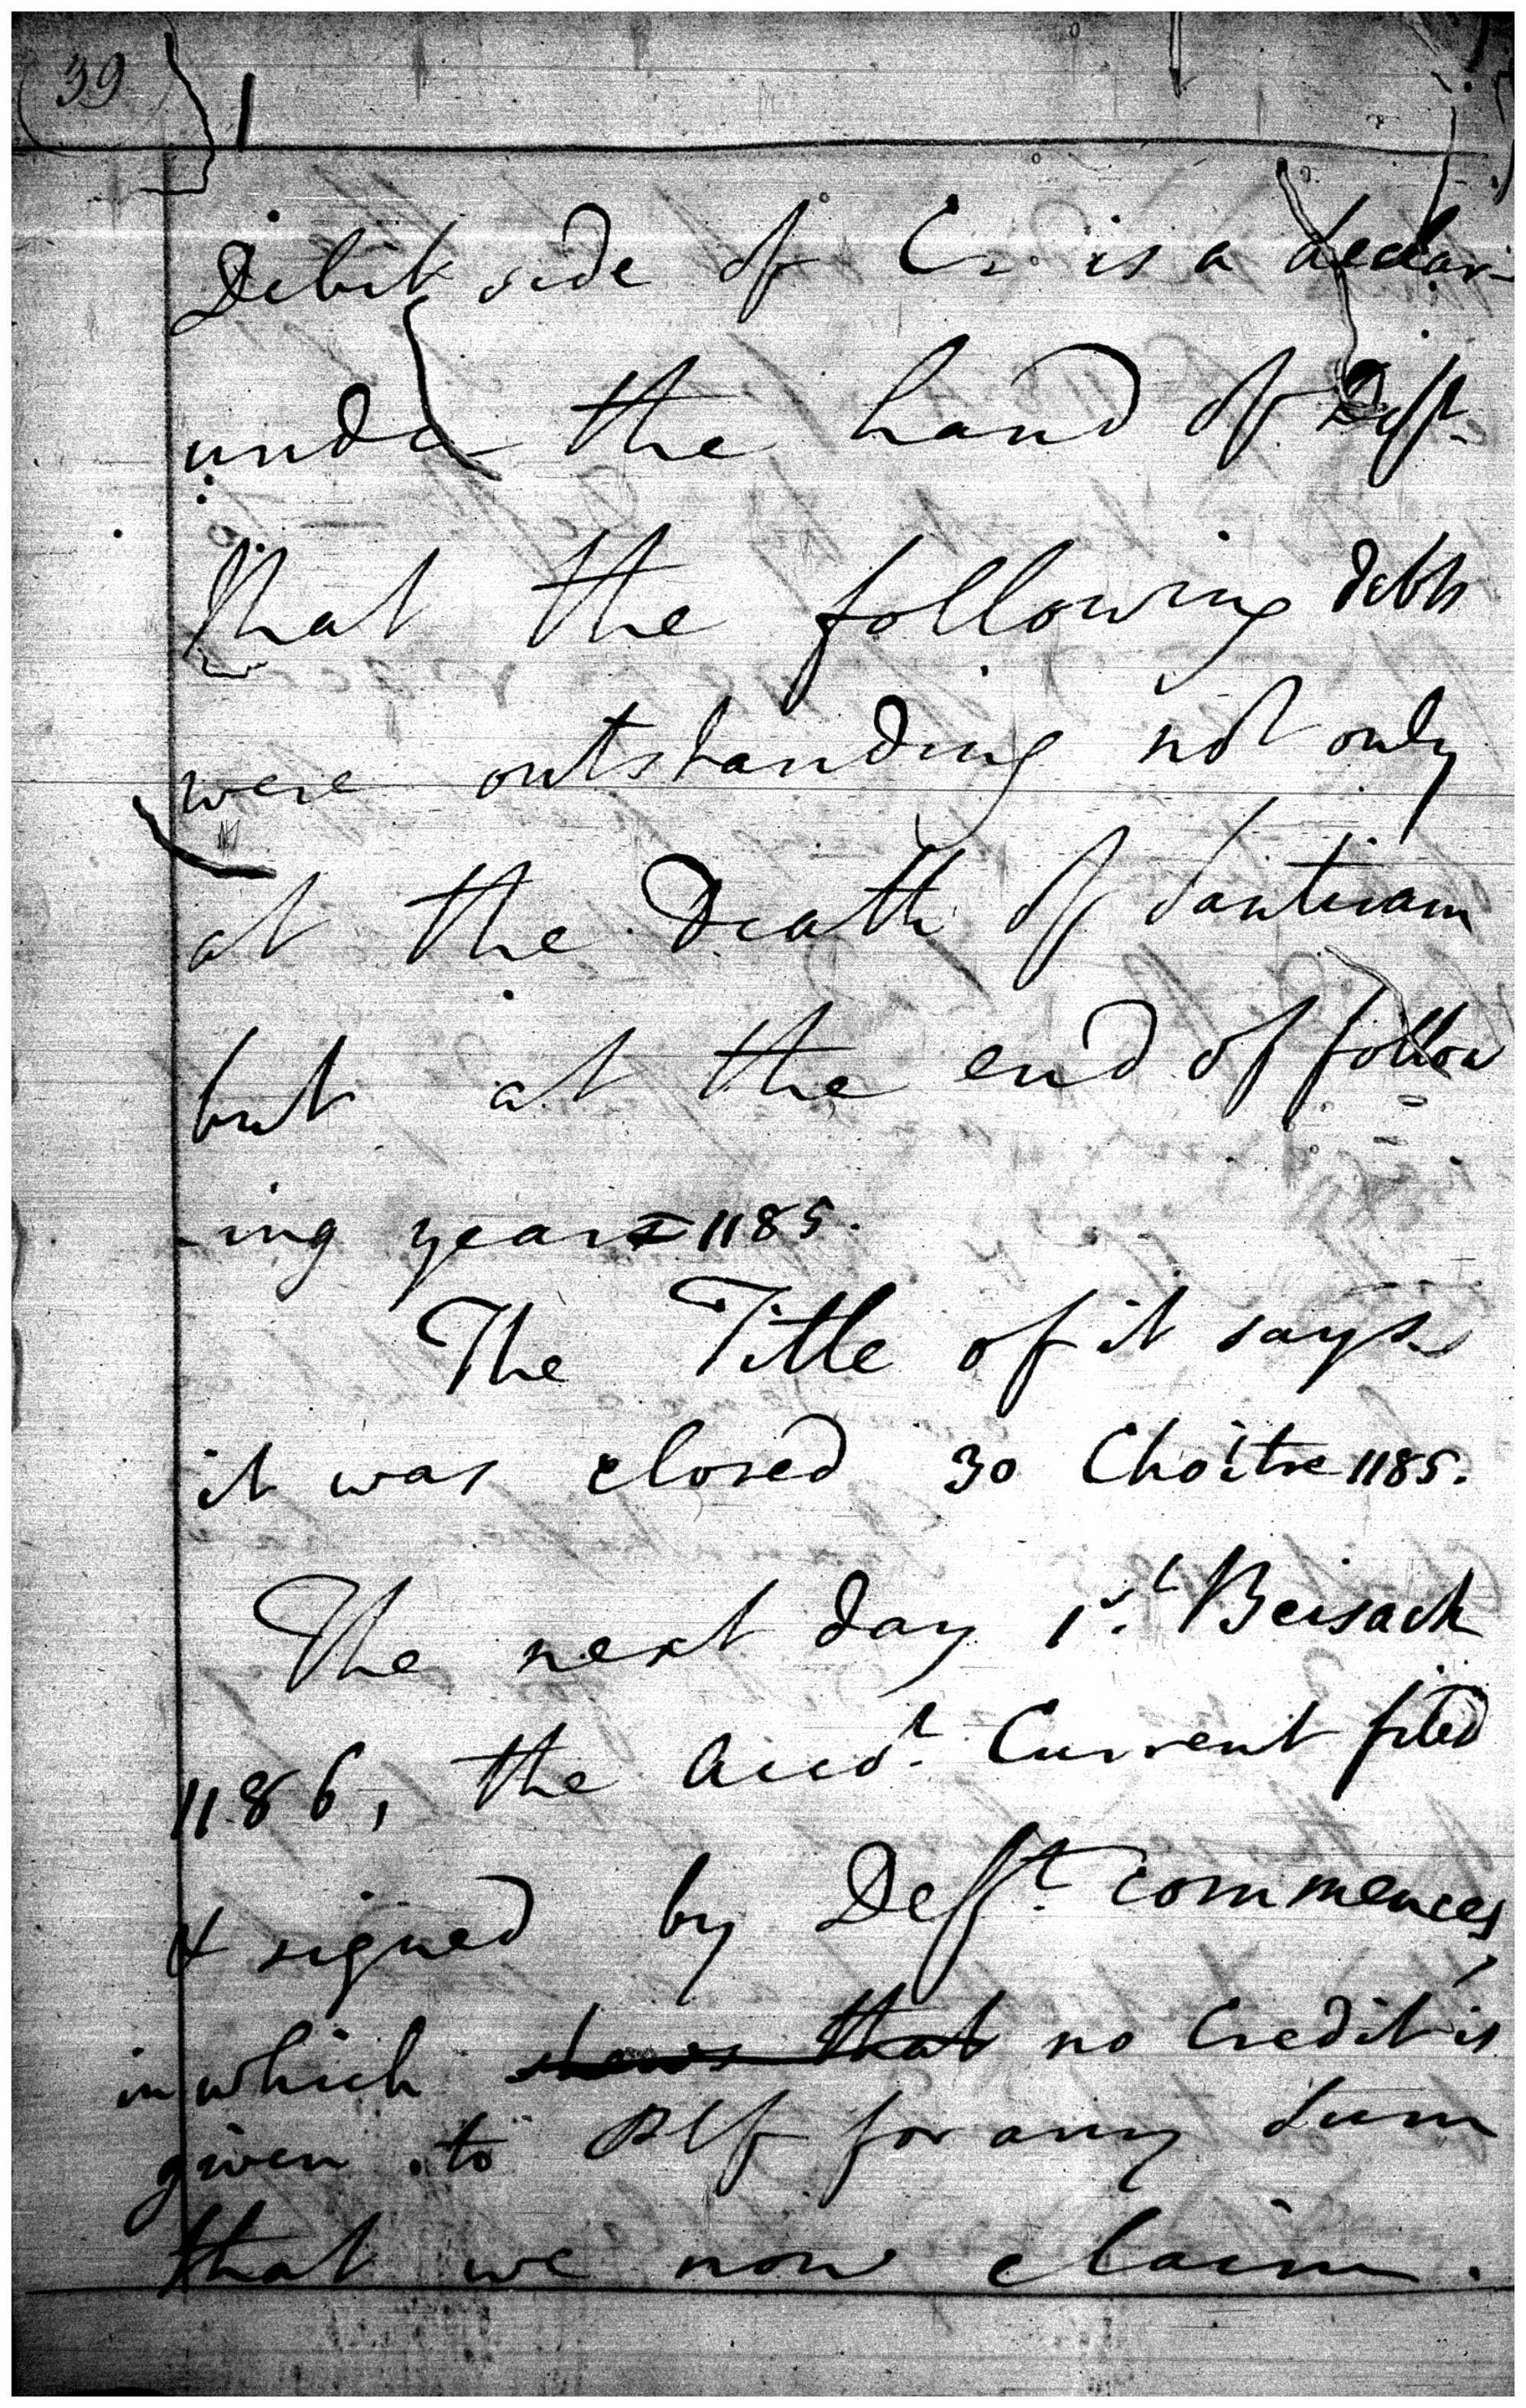 39
Debit side of Cr. is a declar-
under the hand of Defft.
that the following debts
were outstanding not only
at the Death of Santiram
but at the end of follow
-ing year 1185.
The Title of it says
it was closed 30 Choitre 1185.
The next day 1st. Beisack
1186, the Accot. Current filed
& signed by Defft. commences,
in which shows that no Credit is
given to Plf for any Sum
that we now claim.